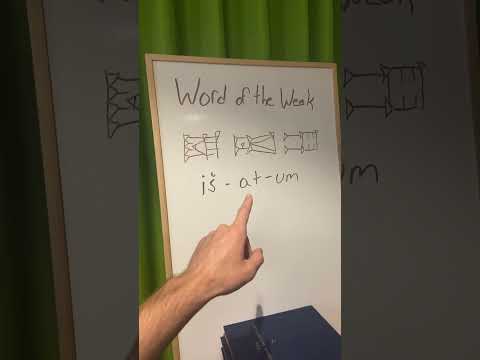 Word of the Weak
iš - at - um